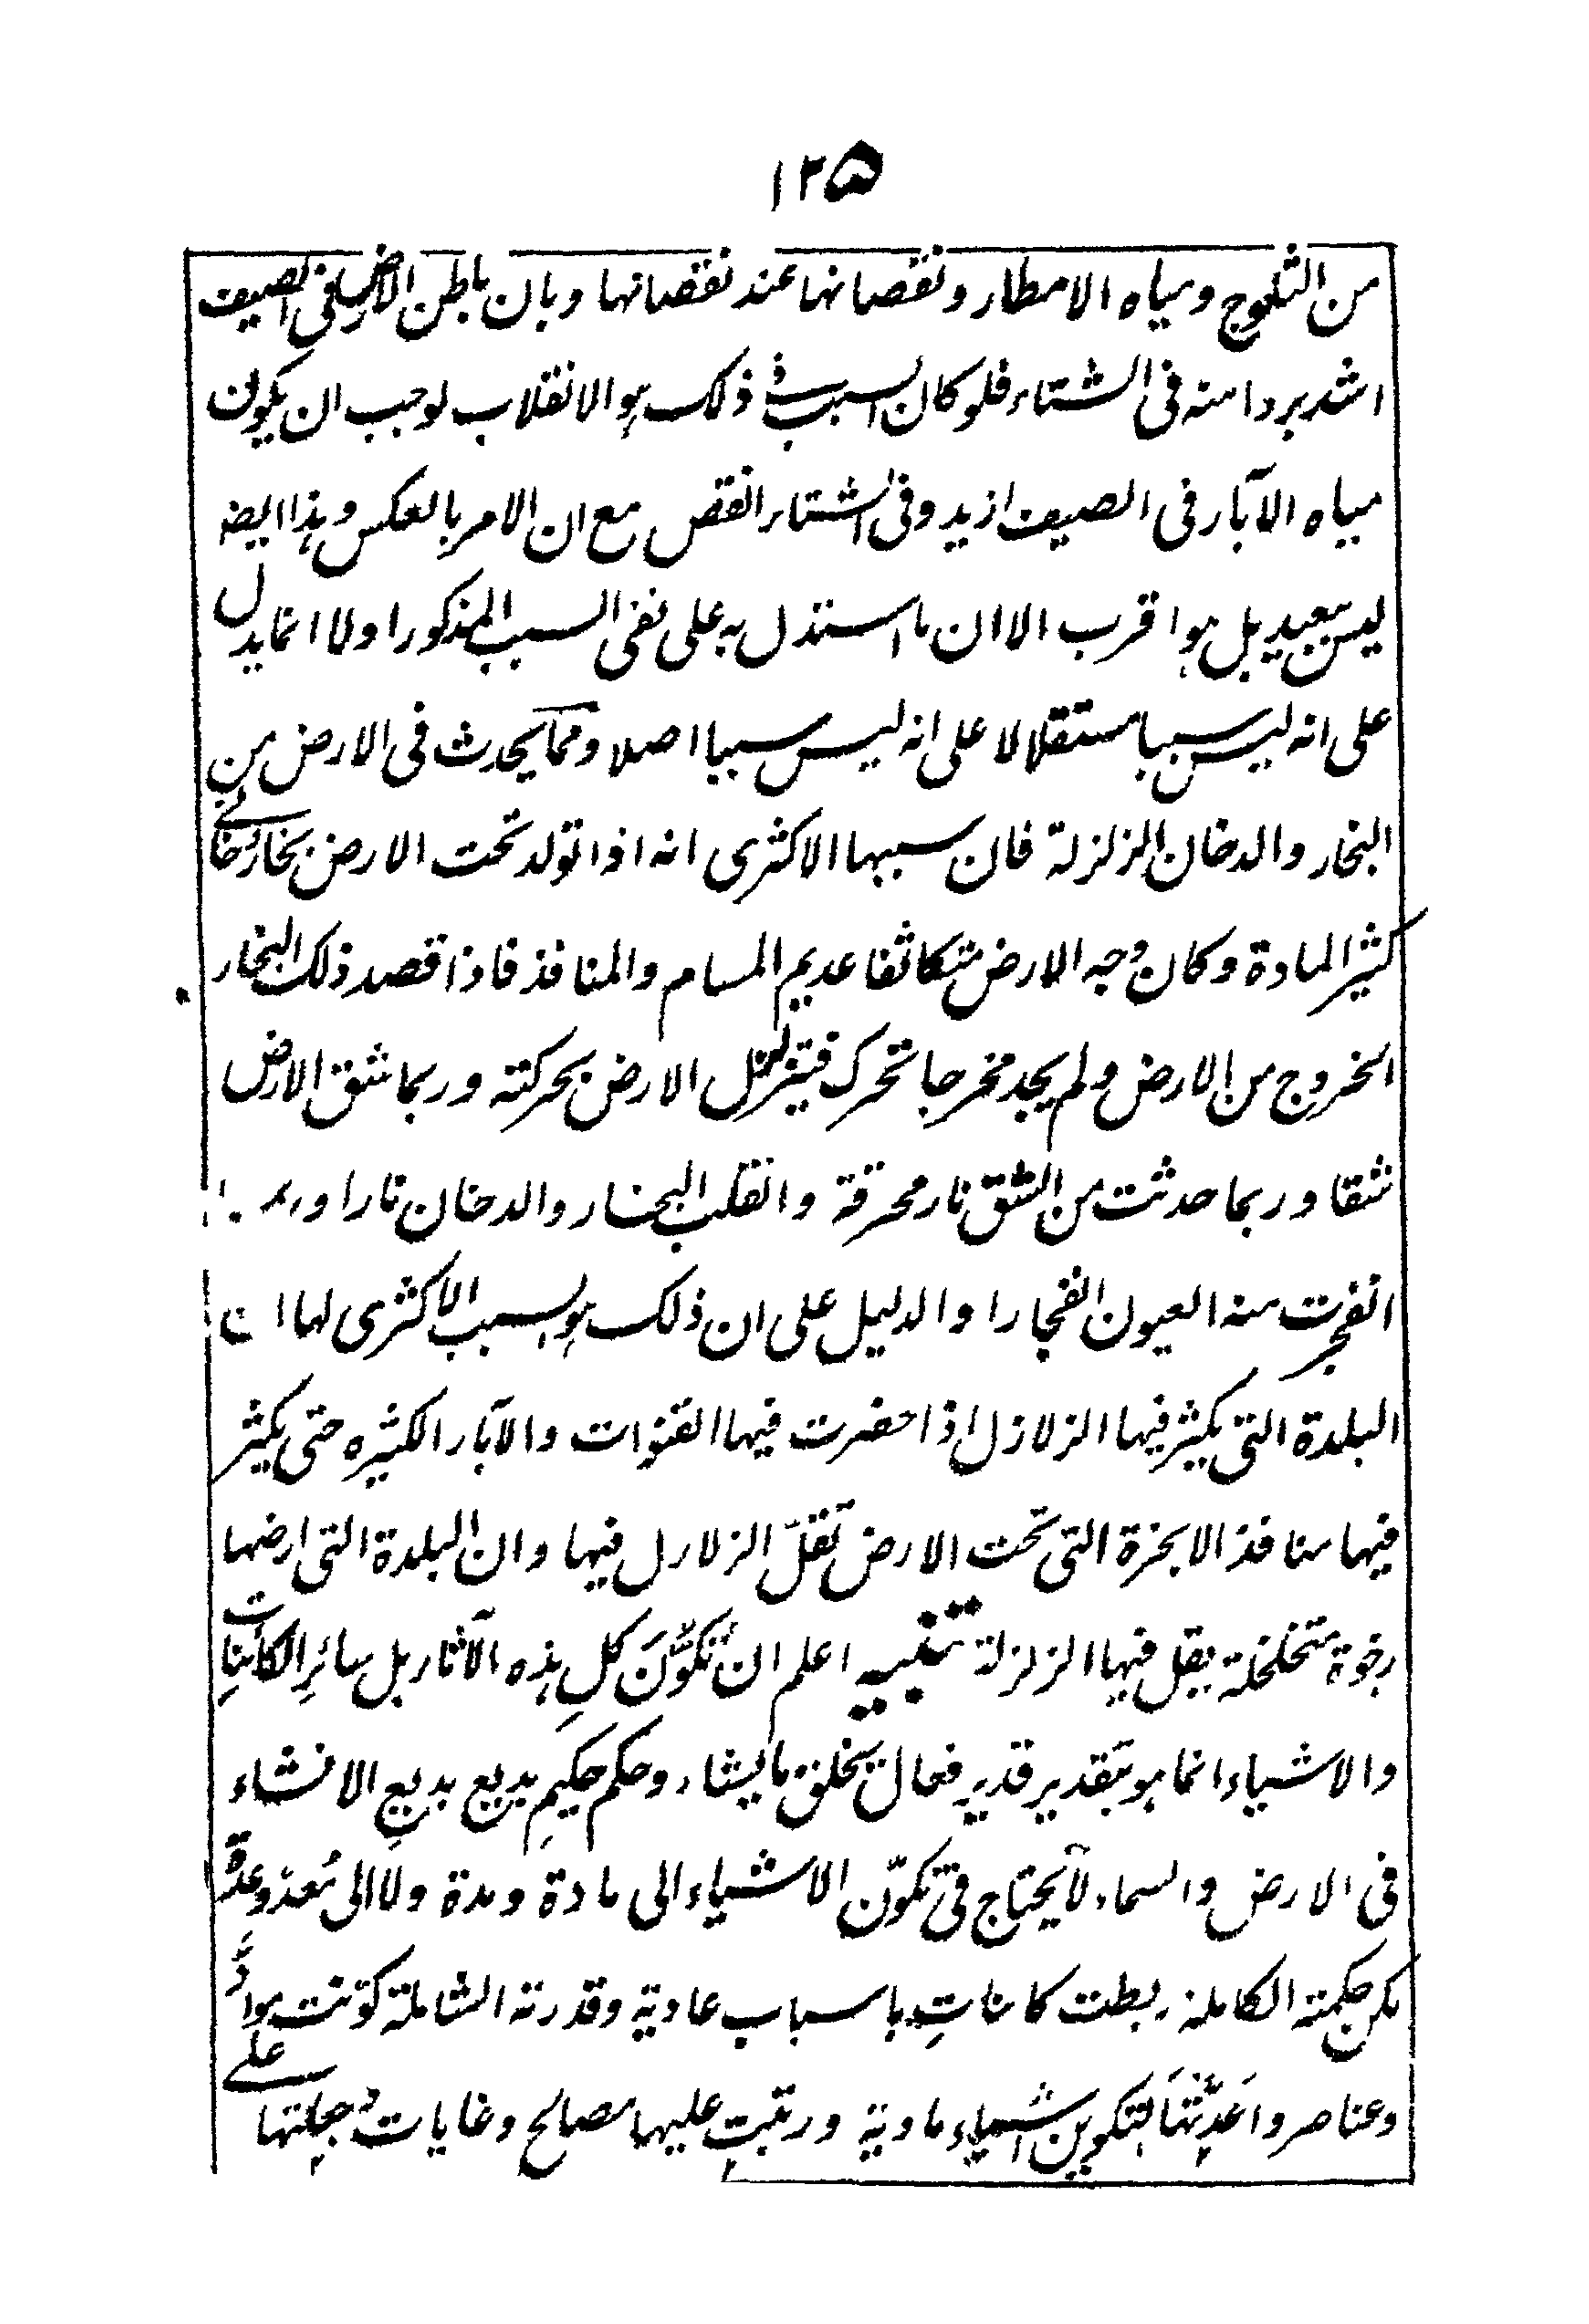 ١٢٥
من الثلوج ومياه الامطار ونقصانها عند نقصانها وبان باطن الارض فى الصيف
اشد بردا منه فى الشتاء فلو كان السبب فى ذلك هو الانقلاب لوجب ان يكون
مياه الآبار فى الصيف ازيد وفى الشتاء انقص مع ان الامر بالعكس وهذا ايضا
ليس ببعيد بل هو اقرب الا ان ما استدل به على نفى السبب المذكور اولا انما يدل
على انه ليس سببا مستقلا لا على انه ليس سببا اصلا ومما يحدث فى الارض من
البخار والدخان الزلزلة فان سببها الاكثرى انه اذا تولد تحت الارض بخار دخانى
كثير المادة وكان وجه الارض متكاثفا عديم المسام والمنافذ فاذا قصد ذلك البخار
الخروج من الارض ولم يجد مخرجا تحرك فيتزلزل الارض بحركته وربما شق الارض
شقا وربما حدثت من الشق نار محرقة وانقلب البخار والدخان نارا وربما
انفجرت منه العيون انفجارا والدليل على ان ذلك هو السبب الاكثرى لها ان
البلدة التى يكثر فيها الزلازل اذا حضرت فيها القنوات والآبار الكثيره حتى يكثر
فيها منافذ الابخرة التى تحت الارض تقلّ الزلازل فيها وان البلدة التى ارضها
رخوة متخلخلة يقل فيها الزلزلة تنبيه اعلم ان تَكَوُّنَ كلِ هذه الآثار بل سائرِ الكائناتِ
والاشياء انما هو بتقدير قديرٍ فعال يخلق ما يشاء وحكم حكيمٍ بديع بديعِ الانشاء
فى الارض والسماء لا يحتاج فى تكوّن الاشياء الى مادة ومدة ولا الى مُعدّ وعدّة
لكن حكمته الكاملة ربطت كائناتٍ باسباب عادية وقدرته الشاملة كوّنت موادَّ
وعناصر واَعَدّتْهَا لتكوين اشياء مادية ورتبت عليها مصالح وغايات وجبلتها على